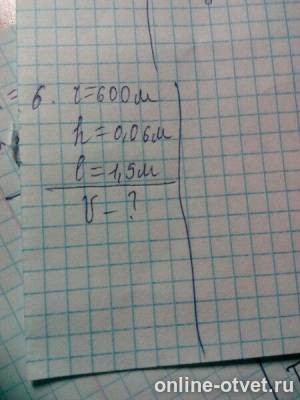 6. r=600м
h=0,06м
l=1,5м
V - ?
online-otvet.ru